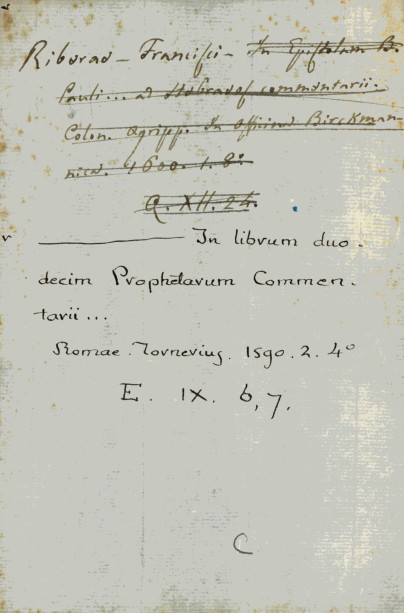 Riberae - Francisci - In Epistolam B.
Pauli... ad Hebraeos commentarii.
Colon. Agripp. In Officina Birckman-
nica. 1600. 1. 8°
Q. XII. 24.
In librum duo-
decim Prophetarum Commen-
tarii...
Romae. Tornerius. 1590. 2. 4°
E. IX. 6, 7.
C